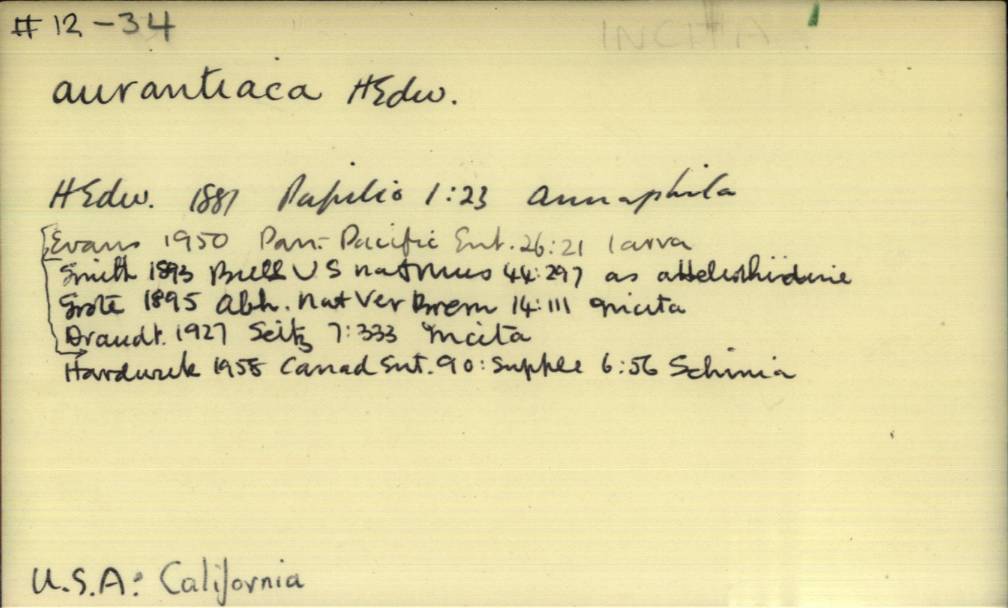 #12-34
INCITA
aurantiaca HEdw.
HEdw. 1881 Papilio 1:23 Annaphila
Evans 1950 Pan-Pacific Ent. 26:21 larva
Smith 1893 Bull US nat mus 44:297 as a Heliothidine
Grote 1895 Abh. Nat Ver Brem 14:111 incita
Draudt. 1927 Seitz 7:333 incita
Hardwick 1958 Canad Ent. 90: Supple 6:56 Schinia
U.S.A: California